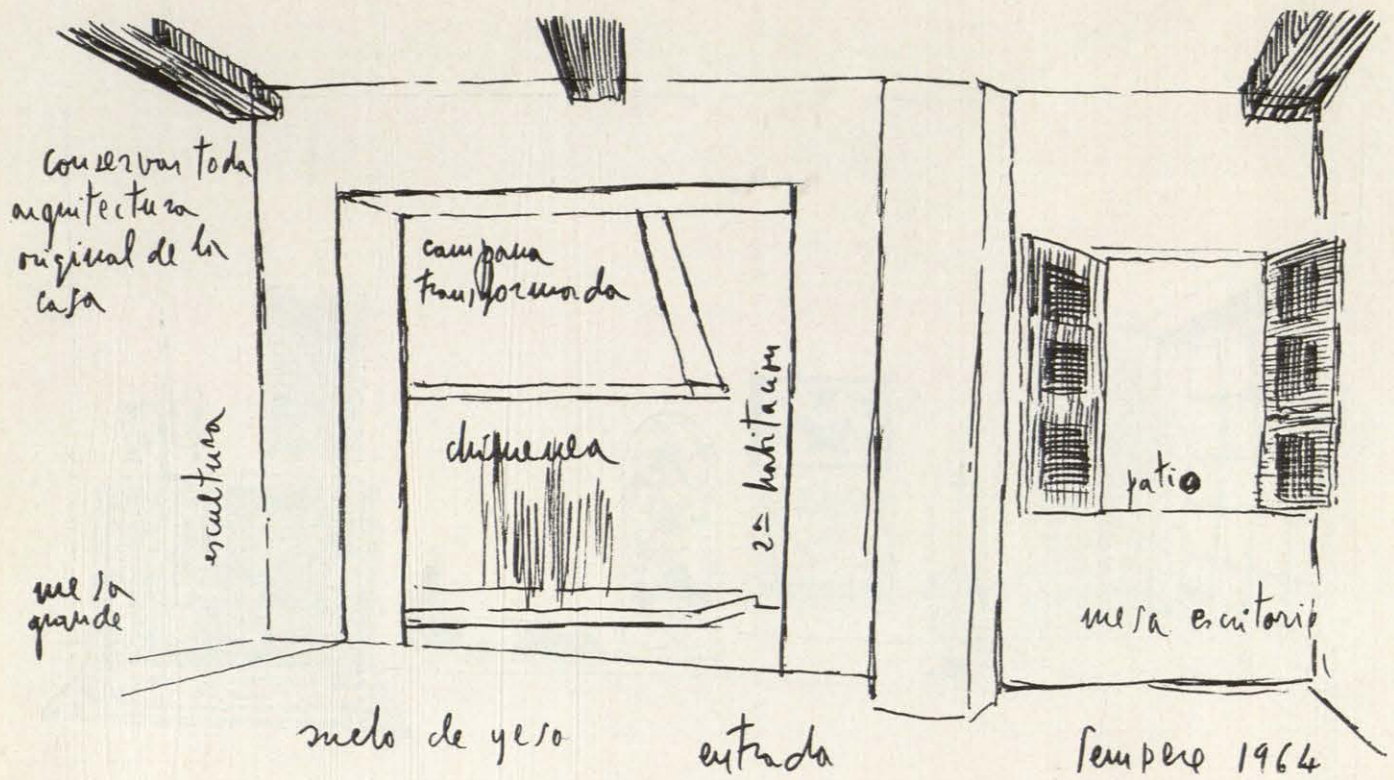 conservar toda
arquitectura
original de la
casa
campana
transformada
escultura
chimenea
2ª habitacion
patio
mesa
grande
mesa escritorio
suelo de yeso
entrada
Sempere 1964